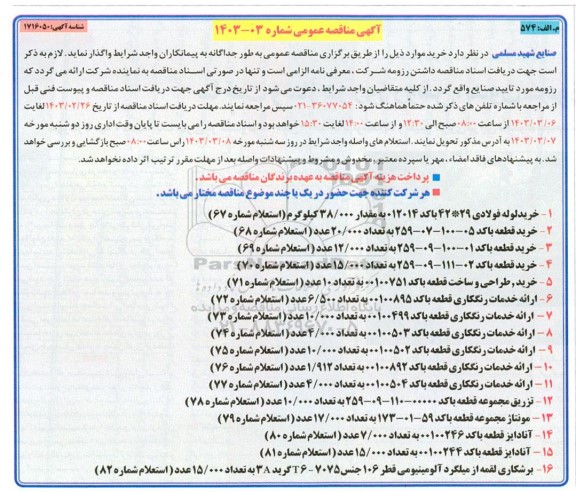 م.الف: ۵۷۴
آگهی مناقصه عمومی شماره ۰۳-۱۴۰۳
شناسه آگهی: ۱۷۱۶۰۵۰
صنایع شهید مسلمی در نظر دارد خرید موارد ذیل را از طریق برگزاری مناقصه عمومی به طور جداگانه به پیمانکاران واجد شرایط واگذار نماید. لازم به ذکر
است جهت دریافت اسناد مناقصه داشتن رزومه شرکت، معرفی نامه الزامی است و تنها در صورتی اسناد مناقصه به نماینده شرکت ارائه می گردد که
رزومه مورد تایید صنایع واقع گردد. از کلیه متقاضیان واجد شرایط، دعوت می شود از تاریخ درج آگهی جهت دریافت اسناد مناقصه و پیوست فنی قبل
از مراجعه با شماره تلفن های ذکر شده حتماً هماهنگ شود: ۳۶۰۷۷۰۵۴-۰۲۱ سپس مراجعه نمایند. مهلت دریافت اسناد مناقصه از تاریخ ۱۴۰۳/۰۲/۲۶ لغایت
۱۴۰۳/۰۳/۰۶ از ساعت ۰۸:۰۰ صبح الی ۱۲:۳۰ و از ساعت ۱۴:۰۰ لغایت ۱۵:۳۰ خواهد بود و اسناد مناقصه را می بایست تا پایان وقت اداری روز دو شنبه مورخه
۱۴۰۳/۰۳/۰۷ به آدرس مذکور تحویل نمایند. استعلام های واصله واجد شرایط در روز سه شنبه مورخه ۱۴۰۳/۰۳/۰۸ راس ساعت ۰۸:۰۰ صبح بازگشایی و بررسی خواهد
شد. به پیشنهادهای فاقد امضاء، مهر یا سپرده معتبر، مخدوش و مشروط و پیشنهادات واصله بعد از مهلت مقرر ترتیب اثر داده نخواهد شد.
پرداخت هزینه آگهی مناقصه به عهده برندگان مناقصه می باشد.
هر شرکت کننده جهت حضور در یک یا چند موضوع مناقصه مختار می باشد.
۱ - خرید لوله فولادی ۲۹*۴۲ با کد ۰۱۲۰۱۴ به مقدار ۳۸/۰۰۰ کیلوگرم (استعلام شماره ۶۷)
۲ - خرید قطعه با کد ۰۵-۱۰۰-۰۷-۲۵۹ به تعداد ۲۰/۰۰۰ عدد (استعلام شماره ۶۸)
۳ - خرید قطعه با کد ۰۱-۱۰۰-۰۹-۲۵۹ به تعداد ۱۲/۰۰۰ عدد (استعلام شماره ۶۹)
۴ - خرید قطعه با کد ۰۲-۱۱۱-۰۹-۲۵۹ به تعداد ۱۵/۰۰۰ عدد (استعلام شماره ۷۰)
۵ - خرید، طراحی و ساخت قطعه با کد ۰۰۱۰۰۷۵۱ به تعداد ۱۰ عدد (استعلام شماره ۷۱)
۶ - ارائه خدمات رنگکاری قطعه با کد ۰۰۱۰۰۸۹۵ به تعداد ۶/۵۰۰ عدد (استعلام شماره ۷۲)
۷ - ارائه خدمات رنگکاری قطعه با کد ۰۰۱۰۰۴۹۹ به تعداد ۱۰/۰۰۰ عدد (استعلام شماره ۷۳)
۸ - ارائه خدمات رنگکاری قطعه با کد ۰۰۱۰۰۵۰۳ به تعداد ۴/۰۰۰ عدد (استعلام شماره ۷۴)
۹ - ارائه خدمات رنگکاری قطعه با کد ۰۰۱۰۰۵۰۲ به تعداد ۱۰/۰۰۰ عدد (استعلام شماره ۷۵)
۱۰ - ارائه خدمات رنگکاری قطعه با کد ۰۰۱۰۰۸۹۲ به تعداد ۱/۹۱۲ عدد (استعلام شماره ۷۶)
۱۱ - ارائه خدمات رنگکاری قطعه با کد ۰۰۱۰۰۵۰۴ به تعداد ۴/۰۰۰ عدد (استعلام شماره ۷۷)
۱۲ - تزریق مجموعه قطعه با کد ۰۰۰۰۰-۱۱۰-۰۹-۲۵۹ به تعداد ۱۰/۰۰۰ عدد (استعلام شماره ۷۸)
۱۳ - مونتاژ مجموعه قطعه با کد ۵۹-۰۱-۱۷۳ به تعداد ۱۷/۰۰۰ عدد (استعلام شماره ۷۹)
۱۴ - آنادایز قطعه با کد ۰۰۱۰۰۲۴۶ به تعداد ۷/۰۰۰ عدد (استعلام شماره ۸۰)
۱۵ - آنادایز قطعه با کد ۰۰۱۰۰۲۴۴ به تعداد ۱۵/۰۰۰ عدد (استعلام شماره ۸۱)
۱۶ - برشکاری لقمه از میلگرد آلومینیومی قطر ۱۰۶ جنس ۷۰۷۵-T6 گرید ۳A به تعداد ۱۵/۰۰۰ عدد (استعلام شماره ۸۲)